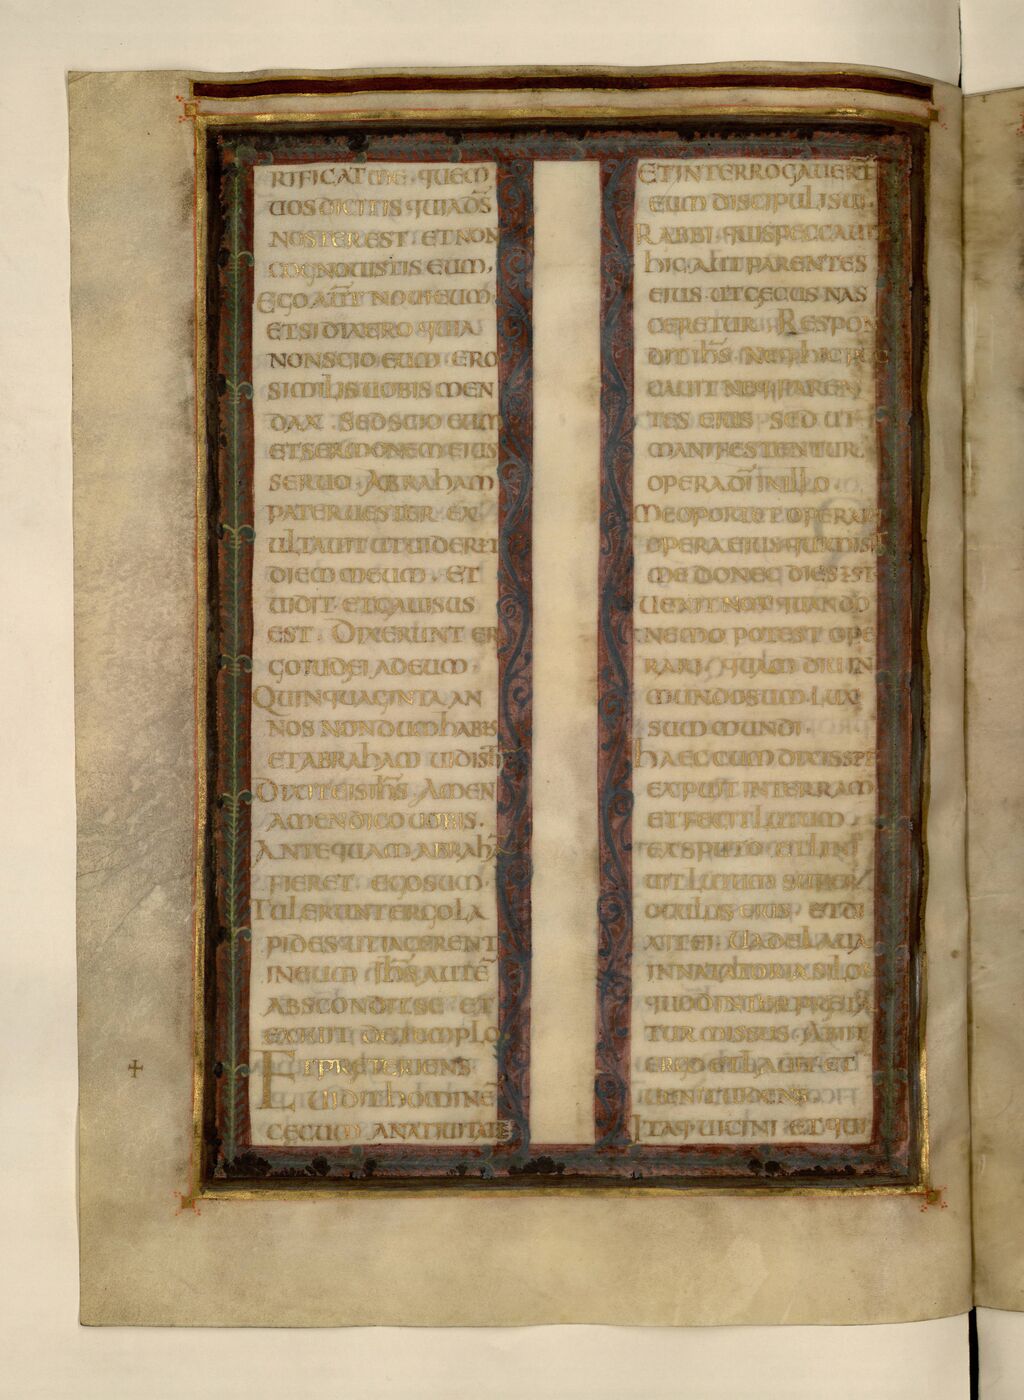 RIFICAT ME· QUEM
UOS DICITIS QUIA DS̄
NOSTER EST· ET NON
COGNOUISTIS EUM·
EGO AUT̄ NOUI EUM·
ET SI DIXERO QUIA
NON SCIO EUM· ERO
SIMILIS UOBIS MEN
DAX· SED SCIO EUM
ET SERMONEM EIUS
SERUO· ABRAHAM
PATER UESTER EX
ULTAUIT UT UIDERET
DIEM MEUM· ET
UIDIT· ET GAUISUS
EST· DIXERUNT ER
GO IUDEI AD EUM·
QUINQUAGINTA AN
NOS NONDUM HABES
ET ABRAHAM UIDISTI
DIXIT EIS IHS̄· AMEN
AMEN DICO UOBIS·
ANTEQUAM ABRAHĀ
FIERET· EGO SUM·
TULERUNT ERGO LA
PIDES UT IACERENT
IN EUM· IHS̄ AUTĒ
ABSCONDIT SE· ET
EXIUIT DE TEMPLO
ET PRĘTERIENS
UIDIT HOMINĒ
CĘCUM A NATIUITATE
ET INTERROGAUERT̄
EUM DISCIPULI SUI·
RABBI· QUIS PECCAUIT
HIC AUT PARENTES
EIUS· UT CĘCUS NAS
CERETUR· RESPON
DIT IHS̄· NEQ· HIC PEC
CAUIT NEQ· PAREN
TES EIUS· SED UT
MANIFESTENTUR
OPERA DĪ IN ILLO·
ME OPORTET OPERARI
OPERA EIUS QUI MISIT
ME DONEC DIES EST·
UENIT NOX QUANDO
NEMO POTEST OPE
RARI· QUAMDIU IN
MUNDO SUM· LUX
SUM MUNDI·
HAEC CUM DIXISSET
EXPUIT IN TERRAM
ET FECIT LUTUM
EX SPUTO· ET LINI
UIT LUTUM SUPER
OCULOS EIUS· ET DI
XIT EI· UADE LAUA
IN NATATORIA SILOE
QUOD INTERPRETA
TUR MISSUS· ABIIT
ERGO ET LAUIT· ET
UENIT UIDENS·
ITAQ· UICINI· ET QUI